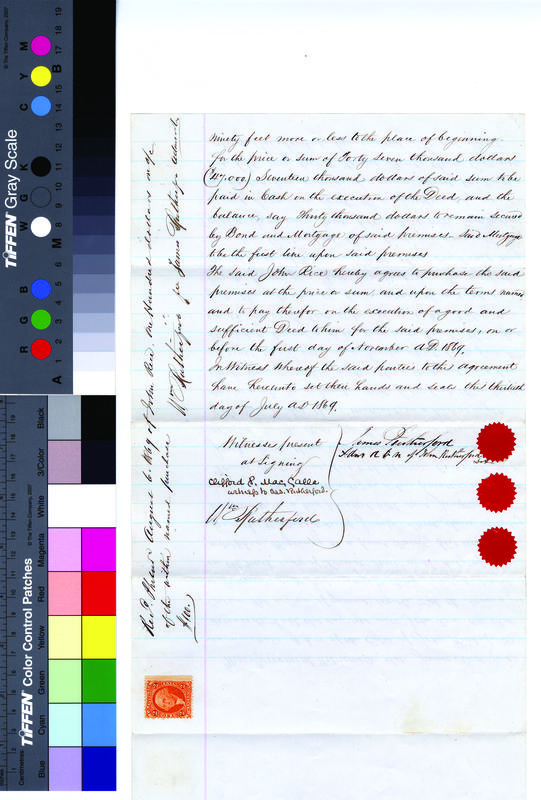 Ninety feet more or less to the place of beginning.
for the price or sum of Forty seven thousand dollars
(47,000) Seventeen thousand dollars of said sum to be
paid in Cash on the execution of the Deed, and the
balance, say Thirty thousand dollars to remain secured
by Bond and Mortgage of said premises. Said Mortgage
to be the first lien upon said premises
The said John Rice hereby agrees to purchase the said
premises at the price or sum, and upon the terms named
and to pay therefor on the execution of a good and
sufficient Deed to him for the said premises, on or
before the first day of November A.D. 1869.
In Witness Whereof the said parties to this agreement
have hereunto set their hands and seals the thirtieth
day of July A.D. 1869.
Witnesses present
at Signing
Clifford P. MacCalla
witness to Jas. Rutherford.
Wm Rutherford
James Rutherford
Adm r d. b. n. of Wm Rutherford
Rec'd August 6 of John Rice One Hundred dollars
of the within named purchase
$100.
Wm Rutherford for James Rutherford Adminst.
TIFFEN Gray Scale
© The Tiffen Company, 2007
R G B W G K C Y M
A 1 2 3 4 5 6 M 8 9 10 11 12 13 14 15 B 17 18 19
TIFFEN Color Control Patches
© The Tiffen Company, 2007
Blue Cyan Green Yellow Red Magenta White 3/Color Black
Inches
Centimetres